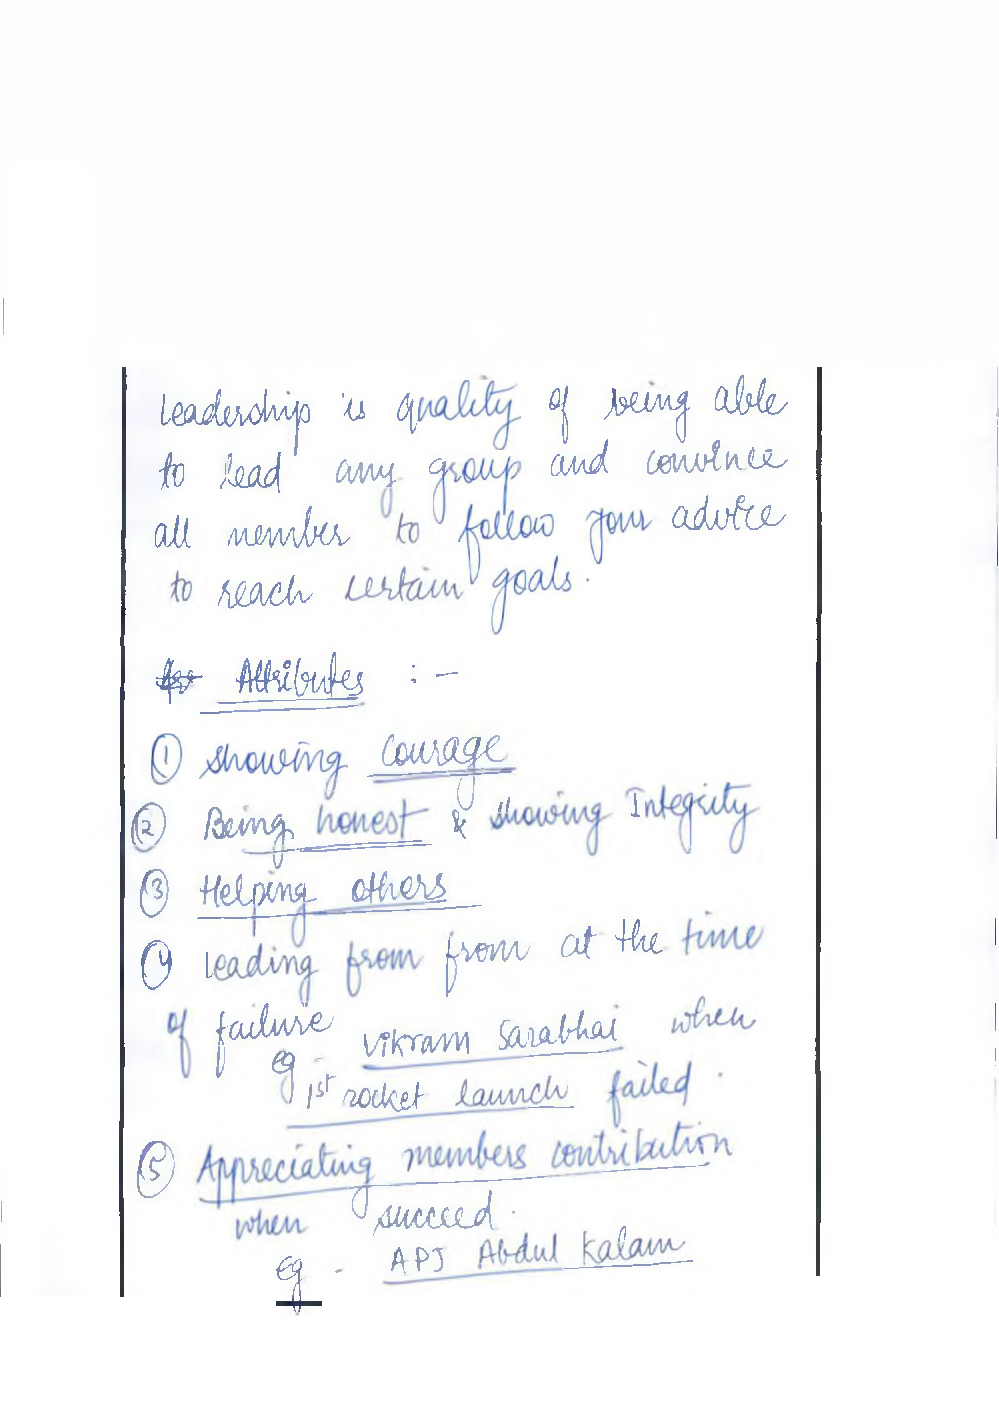 Leadership is quality of being able
to lead any group and convince
all member to follow your advice
to reach certain goals.
Attributes :-
① Showing Courage
② Being honest & showing Integrity
③ Helping others
④ Leading from from at the time
of failure
eg - Vikram Sarabhai when
1st rocket launch failed.
⑤ Appreciating members contribution
when succeed.
eg - APJ Abdul Kalam